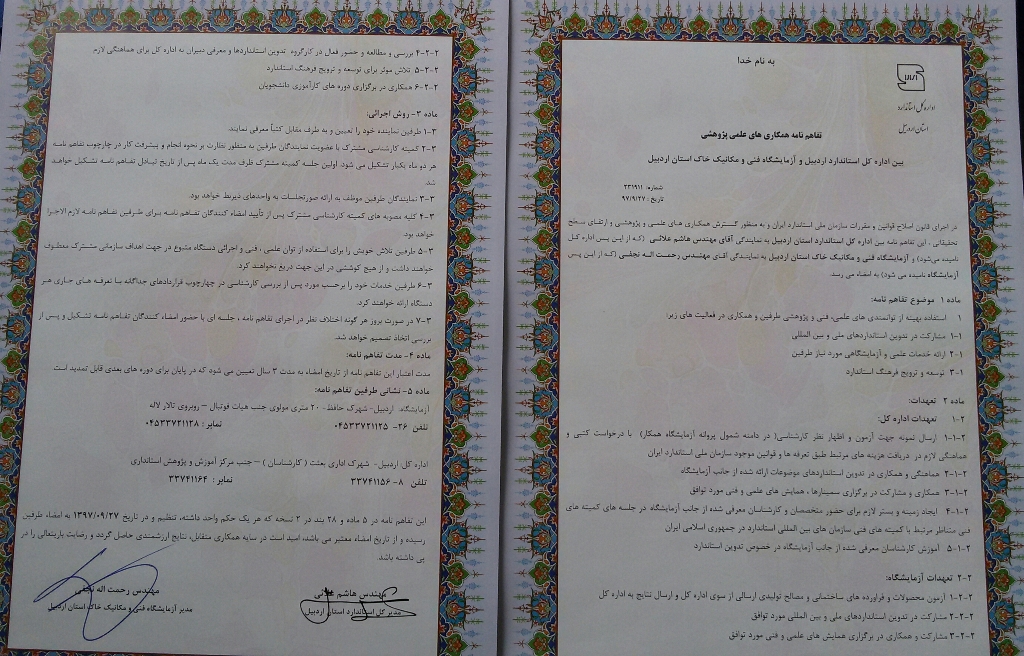 به نام خدا
اداره کل استاندارد
استان اردبیل
تفاهم نامه همکاری های علمی پژوهشی
بین اداره کل استاندارد اردبیل و آزمایشگاه فنی و مکانیک خاک استان اردبیل
شماره: ۲۳۱۹۱۱
تاریخ : ۹۷/۹/۲۷
در اجرای قانون اصلاح قوانین و مقررات سازمان ملی استاندارد ایران و به منظور گسترش همکاری های علمی و پژوهشی و ارتقای سطح
تحقیقاتی ، این تفاهم نامه بین اداره کل استاندارد استان اردبیل به نمایندگی آقای مهندس هاشم علائی (که از این پس اداره کل
نامیده می‌شود) و آزمایشگاه فنی و مکانیک خاک استان اردبیل به نمایندگی آقای مهندس رحمت اله نجفی (که از این پس
آزمایشگاه نامیده می شود) به امضاء می رسد.
ماده ۱ موضوع تفاهم نامه:
۱ استفاده بهینه از توانمندی های علمی، فنی و پژوهشی طرفین و همکاری در فعالیت های زیر:
۱-۱ مشارکت در تدوین استانداردهای ملی و بین المللی
۲-۱ ارائه خدمات علمی و آزمایشگاهی مورد نیاز طرفین
۳-۱ توسعه و ترویج فرهنگ استاندارد
ماده ۲ تعهدات:
۱-۲ تعهدات اداره کل:
۱-۱-۲ ارسال نمونه جهت آزمون و اظهار نظر کارشناسی( در دامنه شمول پروانه آزمایشگاه همکار) با درخواست کتبی و
هماهنگی لازم در دریافت هزینه های مرتبط طبق تعرفه ها و قوانین موجود سازمان ملی استاندارد ایران
۲-۱-۲ هماهنگی و همکاری در تدوین استانداردهای موضوعات ارائه شده از جانب آزمایشگاه
۳-۱-۲ همکاری و مشارکت در برگزاری سمینارها ، همایش های علمی و فنی مورد توافق
۴-۱-۲ ایجاد زمینه و بستر لازم برای حضور متخصصان و کارشناسان معرفی شده از جانب آزمایشگاه در جلسه های کمیته های
فنی متناظر مرتبط با کمیته های فنی سازمان های بین المللی استاندارد در جمهوری اسلامی ایران
۵-۱-۲ آموزش کارشناسان معرفی شده از جانب آزمایشگاه در خصوص تدوین استاندارد
۲-۲ تعهدات آزمایشگاه:
۱-۲-۲ آزمون محصولات و فراورده های ساختمانی و مصالح تولیدی ارسالی از سوی اداره کل و ارسال نتایج به اداره کل
۲-۲-۲ مشارکت در تدوین استانداردهای ملی و بین المللی مورد توافق
۳-۲-۲ مشارکت و همکاری در برگزاری همایش های علمی و فنی مورد توافق
۴-۲-۲ بررسی و مطالعه و حضور فعال در کارگروه تدوین استانداردها و معرفی دبیران به اداره کل برای هماهنگی لازم
۵-۲-۲ تلاش موثر برای توسعه و ترویج فرهنگ استاندارد
۶-۲-۲ همکاری در برگزاری دوره های کارآموزی دانشجویان
ماده ۳- روش اجرائی:
۱-۳ طرفین نماینده خود را تعیین و به طرف مقابل کتباً معرفی نمایند.
۲-۳ کمیته کارشناسی مشترک با عضویت نمایندگان طرفین به منظور نظارت بر نحوه انجام و پیشرفت کار در چارچوب تفاهم نامه
هر دو ماه یکبار تشکیل می شود. اولین جلسه کمیته مشترک ظرف مدت یک ماه پس از تاریخ تبادل تفاهم نامه تشکیل خواهد
شد.
۳-۳ نمایندگان طرفین موظف به ارائه صورتجلسات به واحدهای ذیربط خواهد بود.
۴-۳ کلیه مصوبه های کمیته کارشناسی مشترک پس از تأیید امضاء کنندگان تفاهم نامه برای طرفین تفاهم نامه لازم الاجرا
خواهد بود.
۵-۳ طرفین تلاش خویش را برای استفاده از توان علمی ، فنی و اجرائی دستگاه متبوع در جهت اهداف سازمانی مشترک معطوف
خواهند داشت و از هیچ کوششی در این جهت دریغ نخواهند کرد.
۶-۳ طرفین خدمات خود را برحسب مورد پس از بررسی کارشناسی در چهارچوب قراردادهای جداگانه با تعرفه های جاری هر
دستگاه ارائه خواهند کرد.
۷-۳ در صورت بروز هر گونه اختلاف نظر در اجرای تفاهم نامه ، جلسه ای با حضور امضاء کنندگان تفاهم نامه تشکیل و پس از
بررسی اتخاذ تصمیم خواهد شد.
ماده ۴- مدت تفاهم نامه:
مدت اعتبار این تفاهم نامه از تاریخ امضاء به مدت ۳ سال تعیین می شود که در پایان برای دوره های بعدی قابل تمدید است.
ماده ۵- نشانی طرفین تفاهم نامه:
آزمایشگاه: اردبیل- شهرک حافظ- ۲۰ متری مولوی جنب هیات فوتبال – روبروی تالار لاله
تلفن ۲۶- ۰۴۵۳۳۷۲۱۱۲۵ نمابر : ۰۴۵۳۳۷۲۱۱۲۸
اداره کل: اردبیل- شهرک اداری بعثت ( کارشناسان ) – جنب مرکز آموزش و پژوهش استانداری
تلفن ۸- ۳۳۷۴۱۱۵۶ نمابر : ۳۳۷۴۱۱۶۴
این تفاهم نامه در ۵ ماده و ۲۸ بند در ۲ نسخه که هر یک حکم واحد داشته، تنظیم و در تاریخ ۱۳۹۷/۰۹/۲۷ به امضاء طرفین
رسیده و از تاریخ امضاء معتبر می باشد، امید است در سایه همکاری متقابل، نتایج ارزشمندی حاصل گردد و رضایت باریتعالی را در
پی داشته باشد.
مهندس هاشم علائی
مدیر کل استاندارد استان اردبیل
مهندس رحمت اله نجفی
مدیر آزمایشگاه فنی و مکانیک خاک استان اردبیل